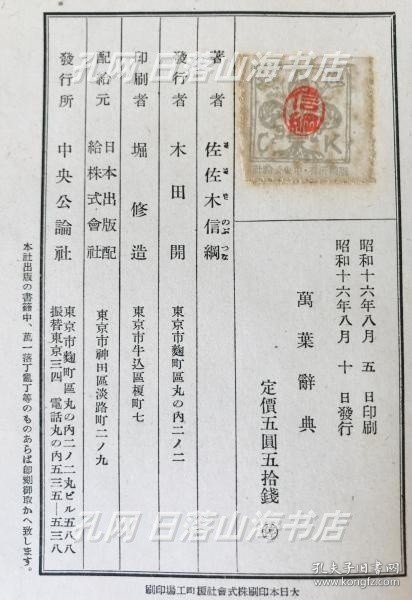 孔网 日落山海书店
信綱
C K
昭和十六年八月 五 日印刷
昭和十六年八月 十 日發行
萬葉辭典
定價五圓五拾錢
著者 佐佐木信綱
さ さ き のぶ つな
發行者 木田開
東京市麴町區丸の內二ノ二
印刷者 堀修造
東京市牛込區榎町七
配給元 日本出版配給株式會社
東京市神田區淡路町二ノ九
發行所 中央公論社
東京市麴町區丸の內二ノ二丸ビル五八八
振替東京三四 電話丸の內五三五―五三八
本社出版の書籍中、萬一落丁亂丁等のものあらば卽刻御取かへ致します。
孔网 日落山海书店
大日本印刷株式會社榎町工場印刷
孔网 日落山海书店
孔夫子旧书网